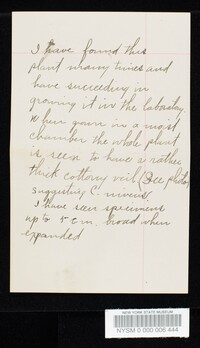 I have found this
plant many times and
have succeeding in
growing it in the laboratory
When grown in a moist
chamber the whole plant
is seen to have a rather
thick cottony veil (See photo)
suggesting C. niveus.
I have seen specimens
up to 5 cm. broad when
expanded
NEW YORK STATE MUSEUM
NYSM 0 000 006 444